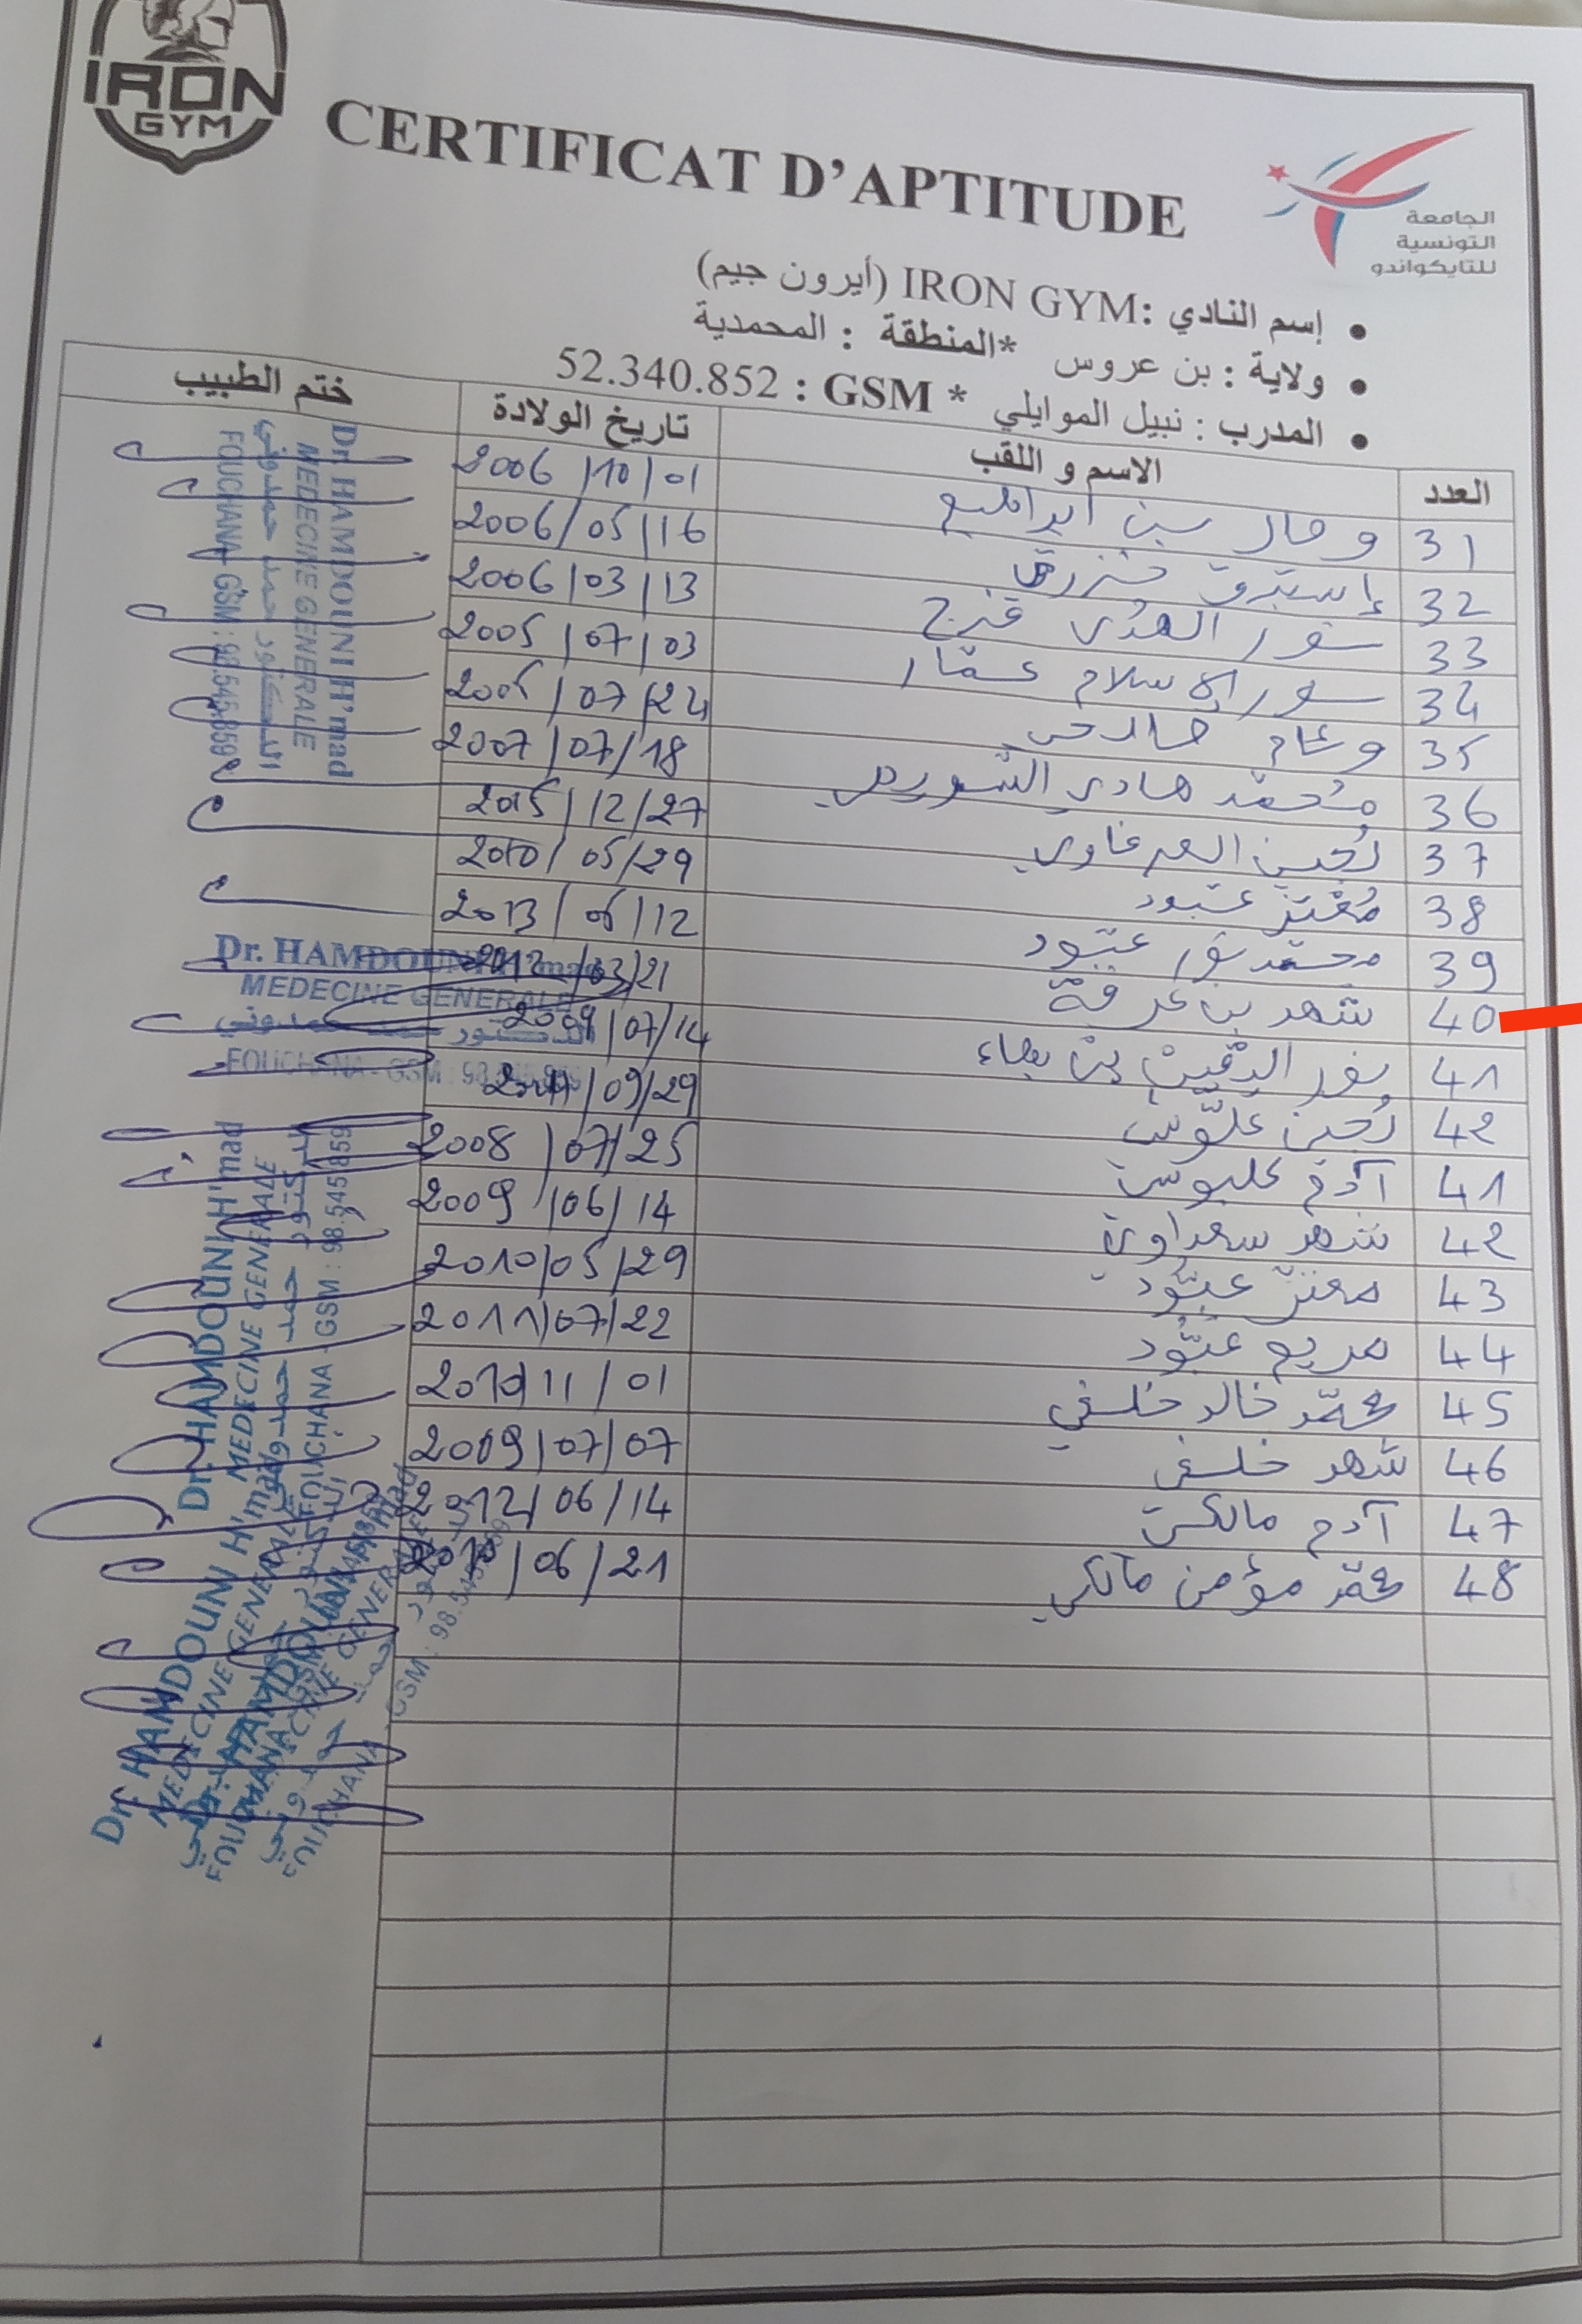 IRON
GYM
CERTIFICAT D'APTITUDE
الجامعة
التونسية
للتايكواندو
إسم النادي :IRON GYM (أيرون جيم)
ولاية : بن عروس *المنطقة : المحمدية
المدرب : نبيل الموايلي * GSM : 52.340.852
العدد الاسم و اللقب تاريخ الولادة ختم الطبيب
31 بن ابراهيم 2006/10/01
32 إستبرق 2006/05/16
33 نور الهدى فرج 2006/03/13
34 نور الاسلام عمّار 2005/07/03
35 وئام 07/24
36 محمّد هادي 2007/07/18
37 لجين العرفاوي 2015/12/27
38 مُعْتز عبود 2010/05/29
39 محمد نور عبّود 2013/ /12
40 شهد بن عرفة 2012/03/21
41 نور اليقين بن بهاء 2009/07/14
42 لجين علّوش /09/29
41 آدم عليوش 2008/07/25
42 شهد سعداوي 2009/06/14
43 معتز عبّود 2010/05/29
44 مريم عبّود 2011/07/22
45 محمّد خالد خلفي 2010/11/01
46 شهد خلفي 2009/07/07
47 آدم مالكي 2012/06/14
48 محمّد مؤمن مالكي 2010/06/21
Dr. HAMDOUNI H'mad
MEDECINE GENERALE
الدكتور حمد حمدوني
FOUCHANA - GSM : 98.545.859
Dr. HAMDOUNI H'mad
MEDECINE GENERALE
الدكتور حمد حمدوني
FOUCHANA - GSM : 98
Dr. HAMDOUNI H'mad
MEDECINE GENERALE
الدكتور حمد حمدوني
FOUCHANA - GSM : 98.545.859
Dr. HAMDOUNI H'mad
MEDECINE GENERALE
FOUCHANA